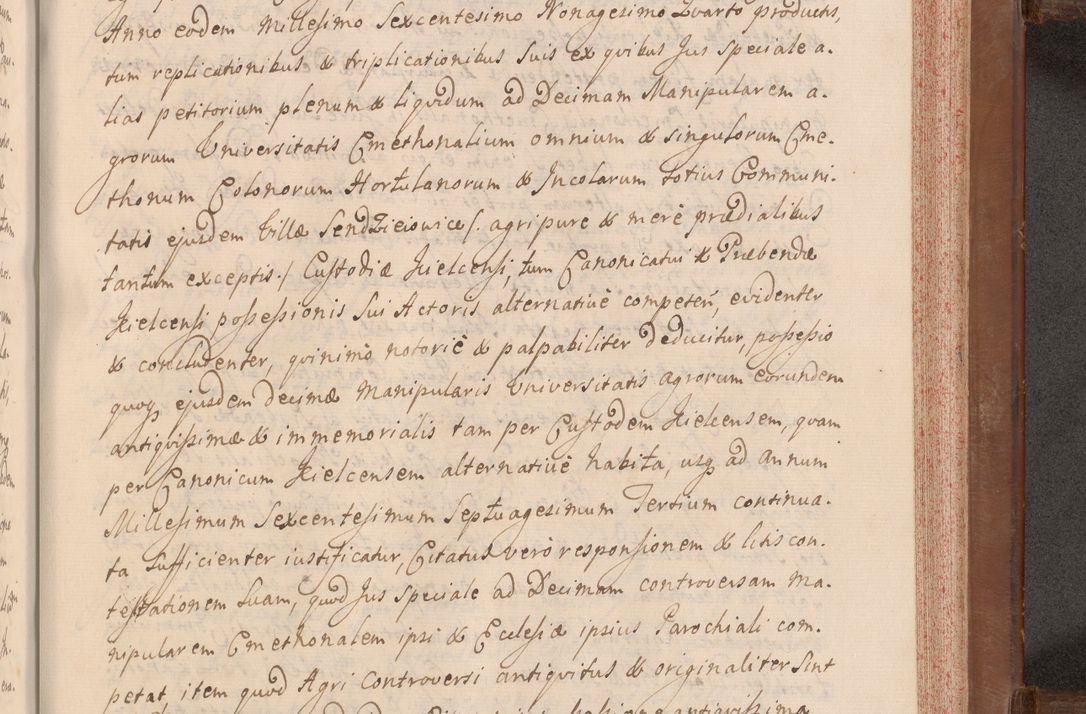 Anno eodem Millesimo Sexcentesimo Nonagesimo Quarto productis,
tum replicationibus & triplicationibus suis ex quibus Jus speciale a-
lias petitorium plenum & liquidum ad Decimam Manipularem a-
grorum Universitatis Cmethonalium omnium & singulorum Cme-
thonum Colonorum Hortulanorum & Incolarum totius Communi-
tatis ejusdem Villæ Sendzieiowice /. agri pure & merè prædialibus
tantum exceptis ./ Custodiæ Kielcensi, tum Canonicatui & Præbendæ
Kielcensi possessionis sui Actoris alternativè competeri, evidenter
& concludenter, quinimò notoriè & palpabiliter deducitur, possessio
quoq ejusdem decimæ Manipularis Universitatis agrorum eorundem
antiquissimæ & immemorialis tam per Custodem Kielcensem, quam
per Canonicum Kielcensem alternativè habita, usq ad annum
Millesimum Sexcentesimum Septuagesimum Tertium continua-
ta sufficienter iustificatur, Citatus verò responsionem & litis con-
testationem suam, quod Jus speciale ad Decimam controversam Ma-
nipularem Cmethonalem ipsi & Ecclesiæ ipsius Parochiali com-
petat, item quod Agri controversi antiquitus & originaliter sint
antiquissima